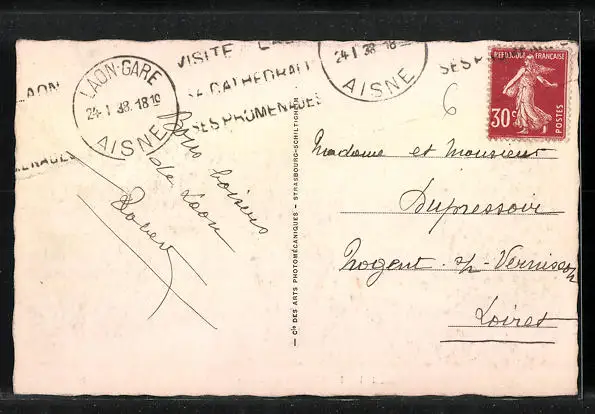 LAON-GARE
24-1 38.18 19
AISNE
LAON
VISITE
SA CATHEDRALE
SES PROMENADES
24-1 38-18
AISNE
REPUBLIQUE FRANÇAISE
30c
POSTES
6
Bons baisers
de Laon
Madame et Monsieur
Dupressoir
Nogent s/- Vernisson
Loiret
Cie DES ARTS PHOTOMÉCANIQUES - STRASBOURG-SCHILTIGHEIM